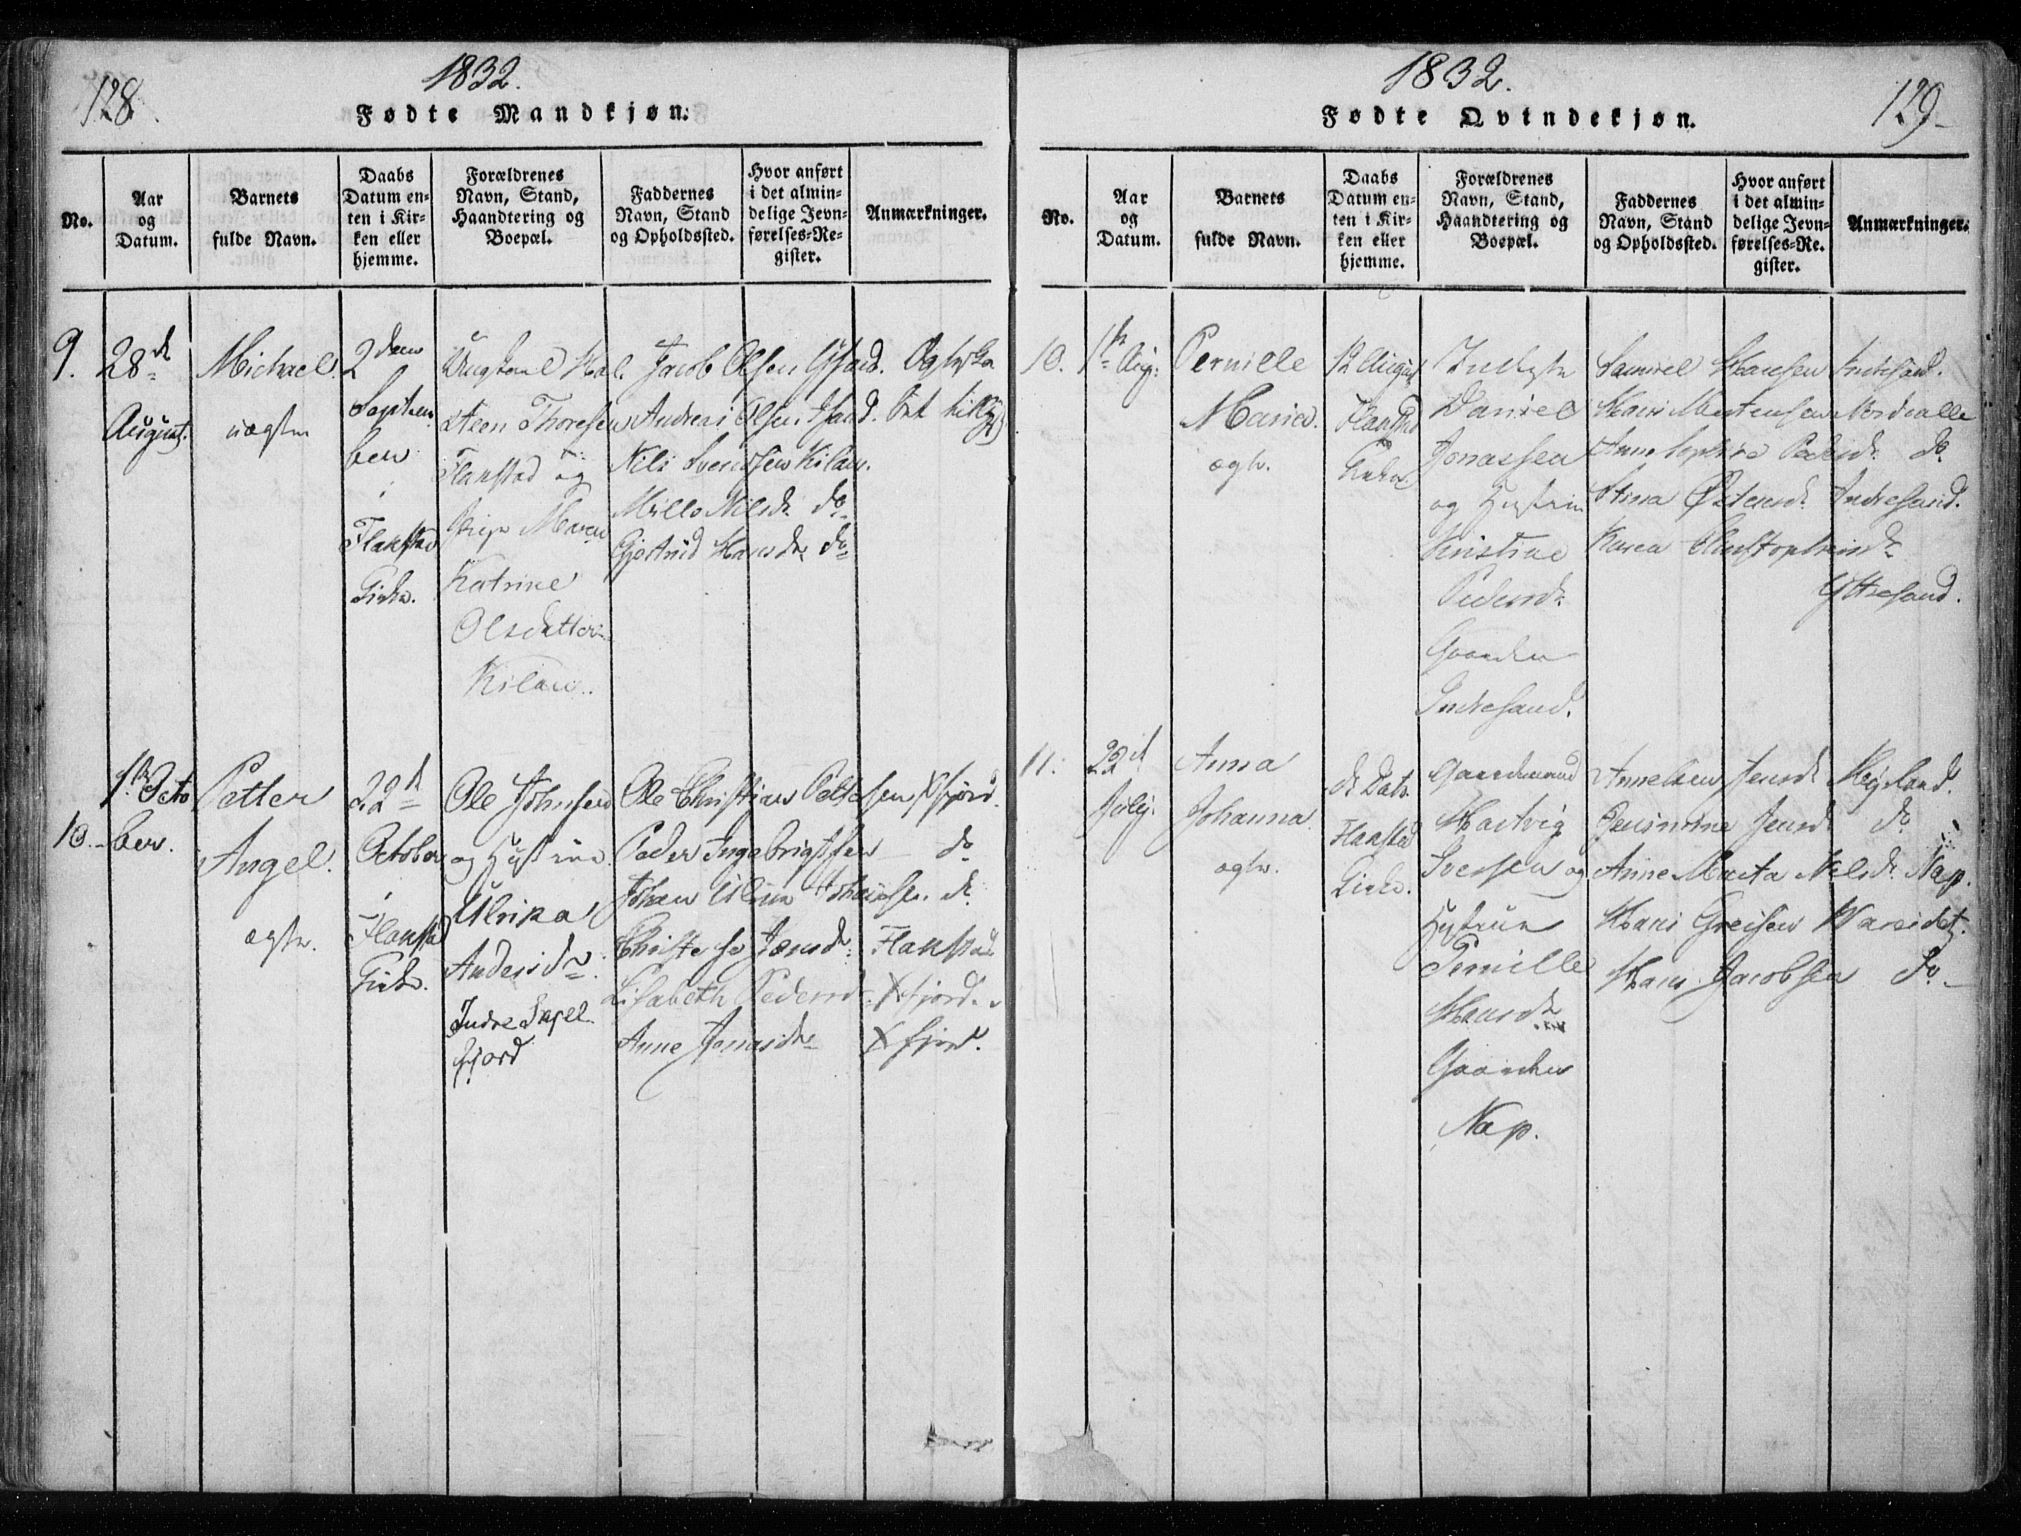 128.
1832.
Fødte Mandkjøn.
No.
Aar
og
Datum.
Barnets
fulde Navn.
Daabs
Datum en-
ten i Kir-
ken eller
hjemme.
Forældrenes
Navn, Stand,
Haandtering og
Boepæl.
Faddernes
Navn, Stand
og Opholdssted.
Hvor anført
i det almin-
delige Jevn-
førelses-Re-
gister.
Anmærkninger.
9.
28de
August.
Michael.
uægte
2den
Septem
ber
i
Flakstad
Kirke.
Ungkarl
Steen Thoresen
Flakstad og
Pige Maren
Katrine
Olsdatter
Kilan.
Jacob Olsen
Andreas Olsen
Nils Svendsen Kilan.
Mille Nilsd. do
Gjertrud Hansd. do
10.
1ste Octo
ber.
Petter
Angel.
ægte.
22d
October
i
Flakstad
Kirke.
Ole Johnsen
og Hustrue
Ulrika
Andersd.
Indre Skjel
fjord
Ole Christian Pettersen Xfjord.
Peder Ingebrigtsen do
Johan Ulrik Johansen. do
Jensd. Flakstad
Lisabeth Pedersd. Xfjord.
Anne Jonasd. Xfjord.
1832.
Fødte Qvindekjøn.
129
No.
Aar
og
Datum.
Barnets
fulde Navn.
Daabs
Datum en-
ten i Kir-
ken eller
hjemme.
Forældrenes
Navn, Stand,
Haandtering og
Boepæl.
Faddernes
Navn, Stand
og Opholdssted.
Hvor anført
i det almin-
delige Jevn-
førelses-Re-
gister.
Anmærkninger.
10.
1ste Aug:
Pernille
Maria.
ægte.
12 August
Flakstad
Kirke
Daniel
Jonassen
og Hustrue
Kristine
Pedersd.
Gaarden
Indresand.
Samuel Hansen Indresand.
Hans Mortensen
Anne Sophie Pedersd. do
Stina Østensd. Indresand.
Karen Christophersd.
Yttresand.
11.
22d
July.
Anna
Johanna
ægte.
do Dato
Flakstad
Kirke.
Gaardmand
Hartvig
Iversen og
Hustrue
Pernille
Hansd.
Gaarden
Nap.
Jensd.
Jensd do
Anne Marta Nilsd. Nap.
Hans Greisen Wareidet.
Hans Jacobsen do